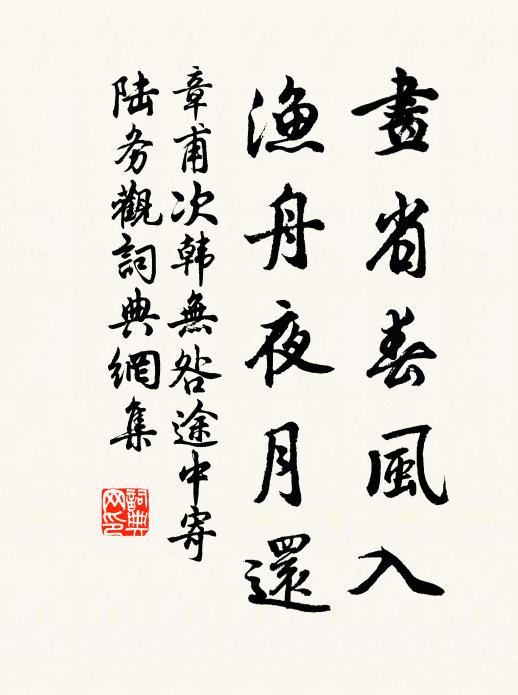 畫省春風入
漁舟夜月還
章甫次韩無咎途中寄
陸务觀詞典網集
詞典
网印